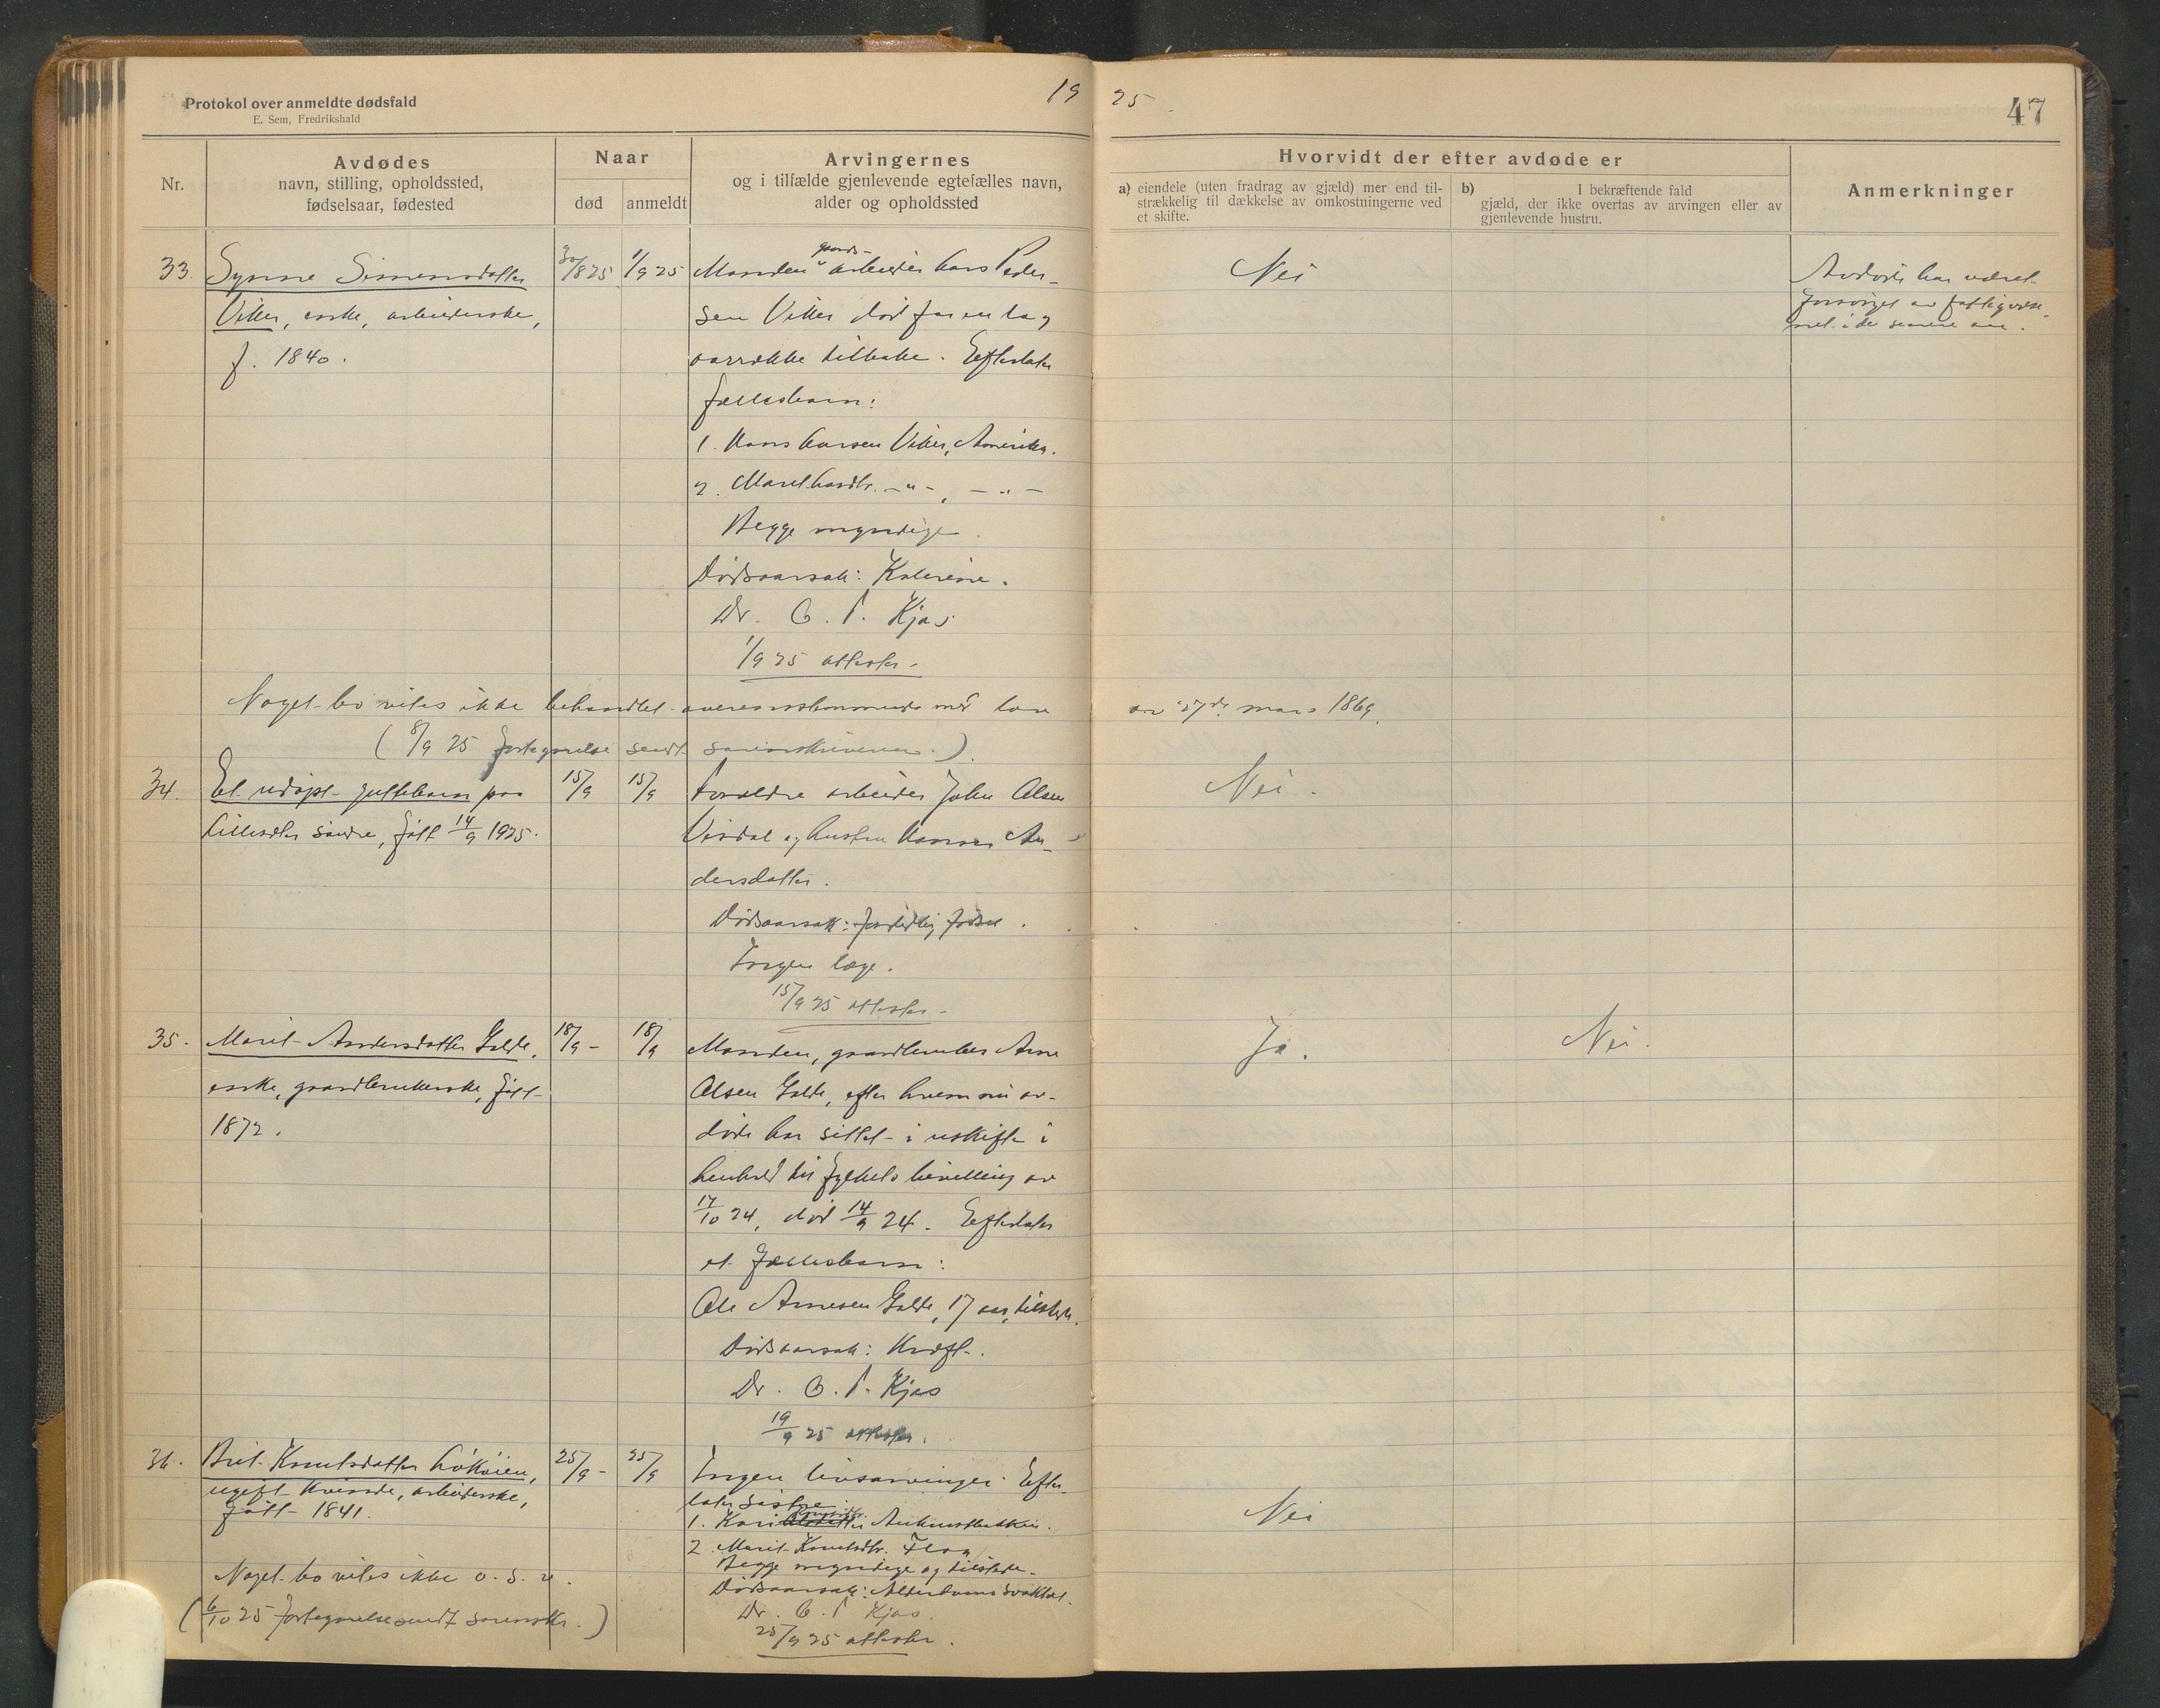 Protokol over anmeldte dødsfald
E. Sem, Fredrikshald
19 25
47
Nr.
Avdødes
navn, stilling, opholdssted,
fødselsaar, fødested
Naar
død
anmeldt
Arvingernes
og i tilfælde gjenlevende egtefælles navn,
alder og opholdssted
Hvorvidt der efter avdøde er
a) eiendele (uten fradrag av gjæld) mer end til-
strækkelig til dækkelse av omkostningerne ved
et skifte.
b) I bekræftende fald
gjæld, der ikke overtas av arvingen eller av
gjenlevende hustru.
Anmerkninger
33.
Synne Simensdatter
Viker, enke, arbeiderske,
f. 1840.
30/8 25
1/9 25
Manden gaards-
arbeider Lars Peder-
sen Viker død for en lang
aarrække tilbake. Efterlater
fællesbarn:
1. Hans Larsen Viker, Amerika.
2. Marit Larsdtr. -"-, -"-
Begge myndige
Dødsaarsak:
Dr. O. P. Kjos
1/9 25 attester.
Nei
Avdøde har været
forsørget av fattigvæse-
net i de senere aar.
Noget bo vites ikke behandlet overensstemmende med lov av 27de mars 1869.
(8/9 25 fortegnelse sendt sorenskriveren.)
34.
Et udøpt guttebarn paa
søndre, født 14/9 1925.
15/9
15/9
Forældre arbeider John Olsen
og hustru An-
dersdatter.
Dødsaarsak: for tidlig fødsel.
Ingen læge.
15/9 25 attester.
Nei.
35.
Marit Andersdatter Galde,
enke, gaardbrukerske, født
1872.
18/9 -
18/9
Manden, gaardbruker Arne
Olsen Galde, efter hvem nu av-
døde har sittet i uskifte i
henhold til fylkets bevilling av
17/10 24, død 14/9 24. Efterlater
et fællesbarn:
Ole Arnesen Galde, 17 aar, tilstede.
Dødsaarsak: Kræft.
Dr. O. P. Kjos
19/9 25 attester.
Ja.
Nei.
36.
Brit Knutsdatter Løkøien,
ugift kvinde, arbeiderske,
født 1841.
25/9 -
25/9
Ingen livsarvinger. Efter-
later søstre:
1. Kari Knutsdtr.
2. Marit Knutsdtr.
Begge myndige og tilstede.
Dødsaarsak: Alderdoms svakhet.
Dr. O. P. Kjos.
25/9 25 attester.
Nei
Noget bo vites ikke o. s. v.
(6/10 25 fortegnelse sendt sorenskr.)